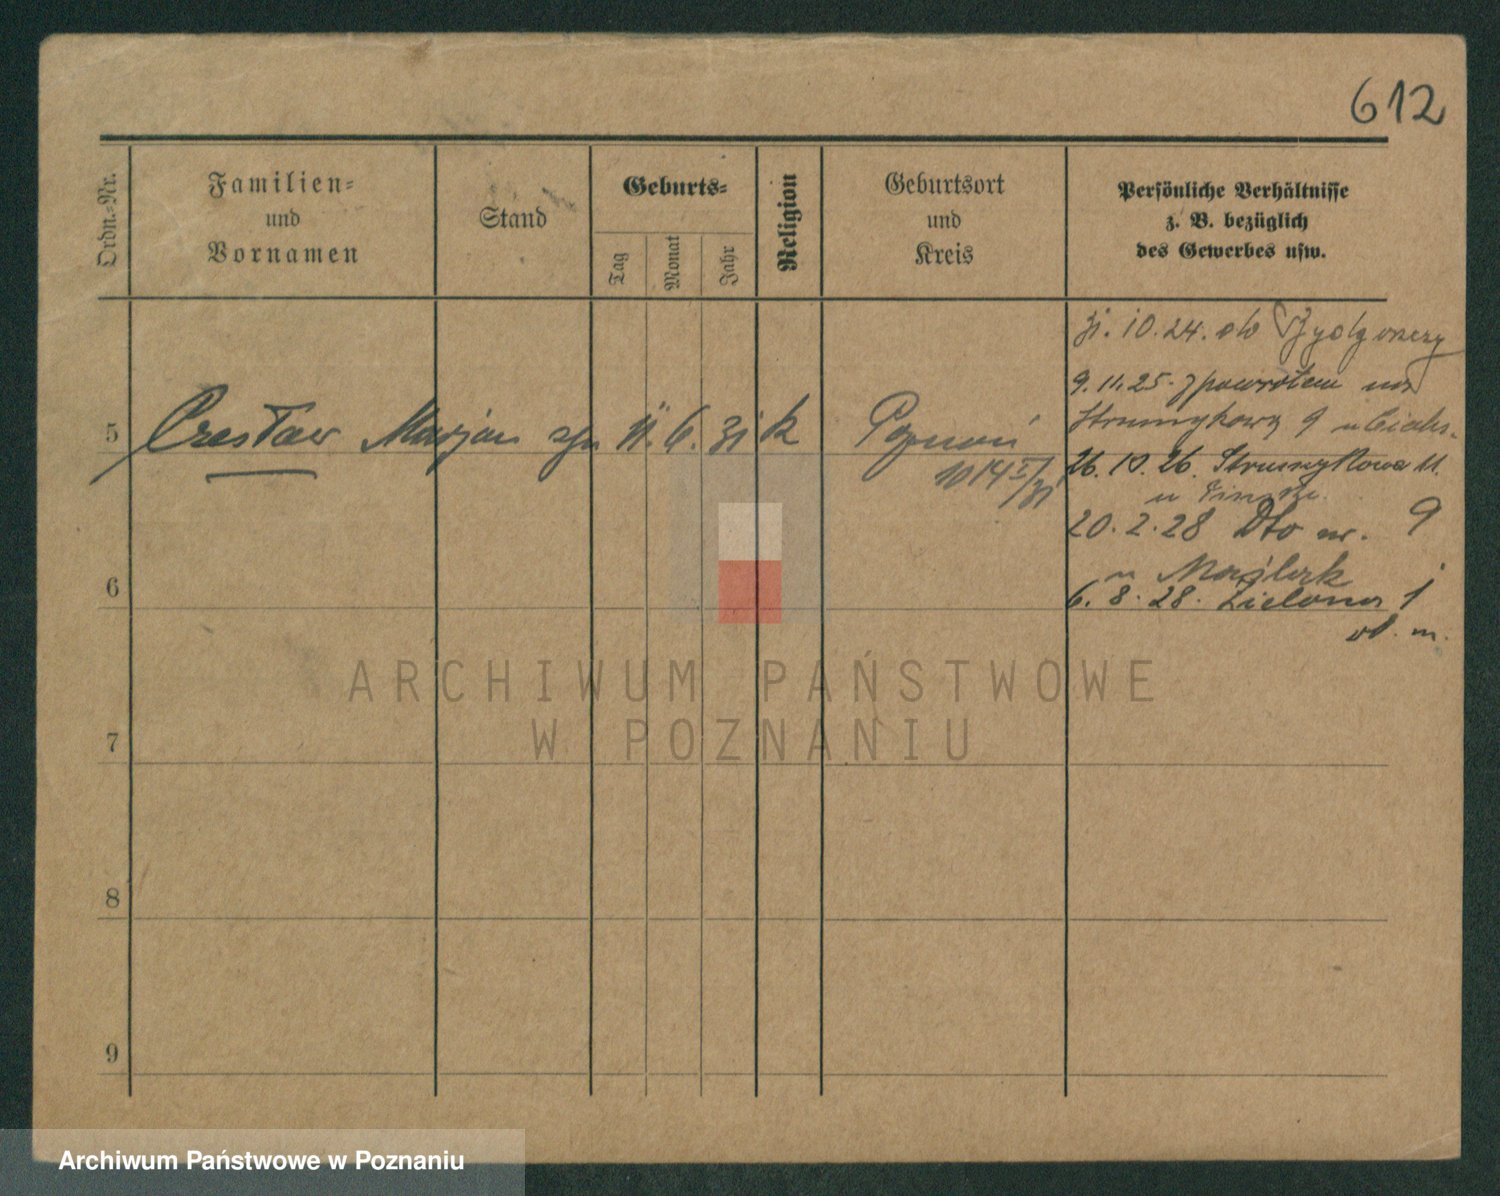 612
Ordn.-Nr.
Familien-
und
Vornamen
Stand
Geburts-
Tag
Monat
Jahr
Religion
Geburtsort
und
Kreis
Persönliche Verhältnisse
z. B. bezüglich
des Gewerbes usw.
31. 10. 24. do Bydgoszczy
9. 11. 25. z powrotem na
Strumykową 9 u
5 Czesław Marjan syn 11. 6. 31 k Poznań
1014 I/31
26. 10. 26. Strumykowa 11.
u
20. 2. 28 Dto nr. 9
u
6
6. 8. 28. Zielona 1
7
8
9
ARCHIWUM PAŃSTWOWE
W POZNANIU
Archiwum Państwowe w Poznaniu